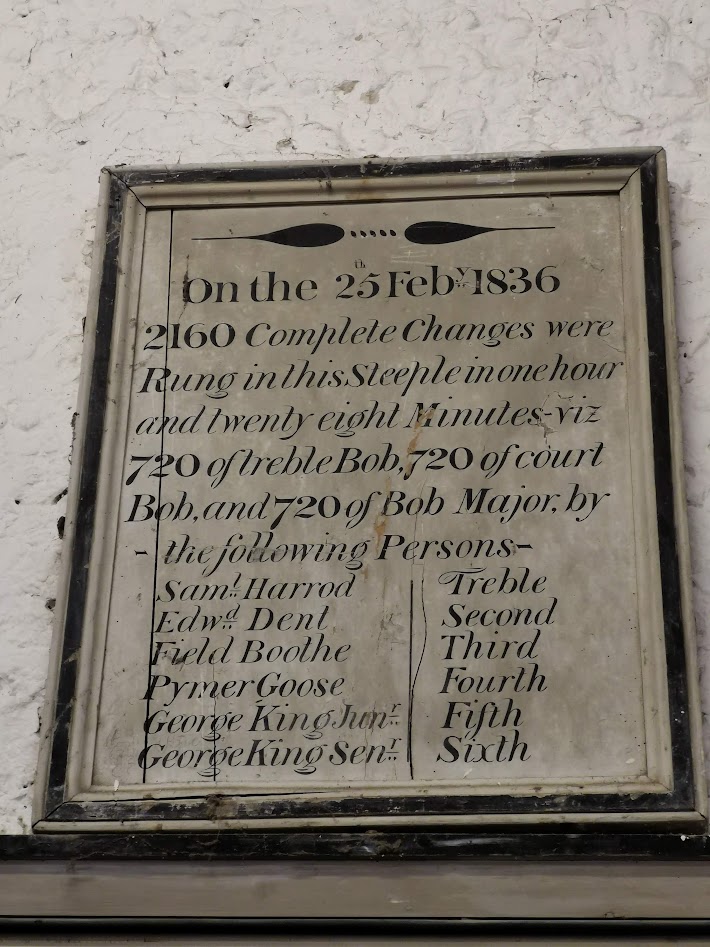 On the 25th Feby 1836
2160 Complete Changes were
Rung in this Steeple in one hour
and twenty eight Minutes-viz
720 of treble Bob, 720 of court
Bob, and 720 of Bob Major, by
- the following Persons-
Saml Harrod Treble
Edwd Dent Second
Field Boothe Third
Pymer Goose Fourth
George King Junr Fifth
George King Senr Sixth